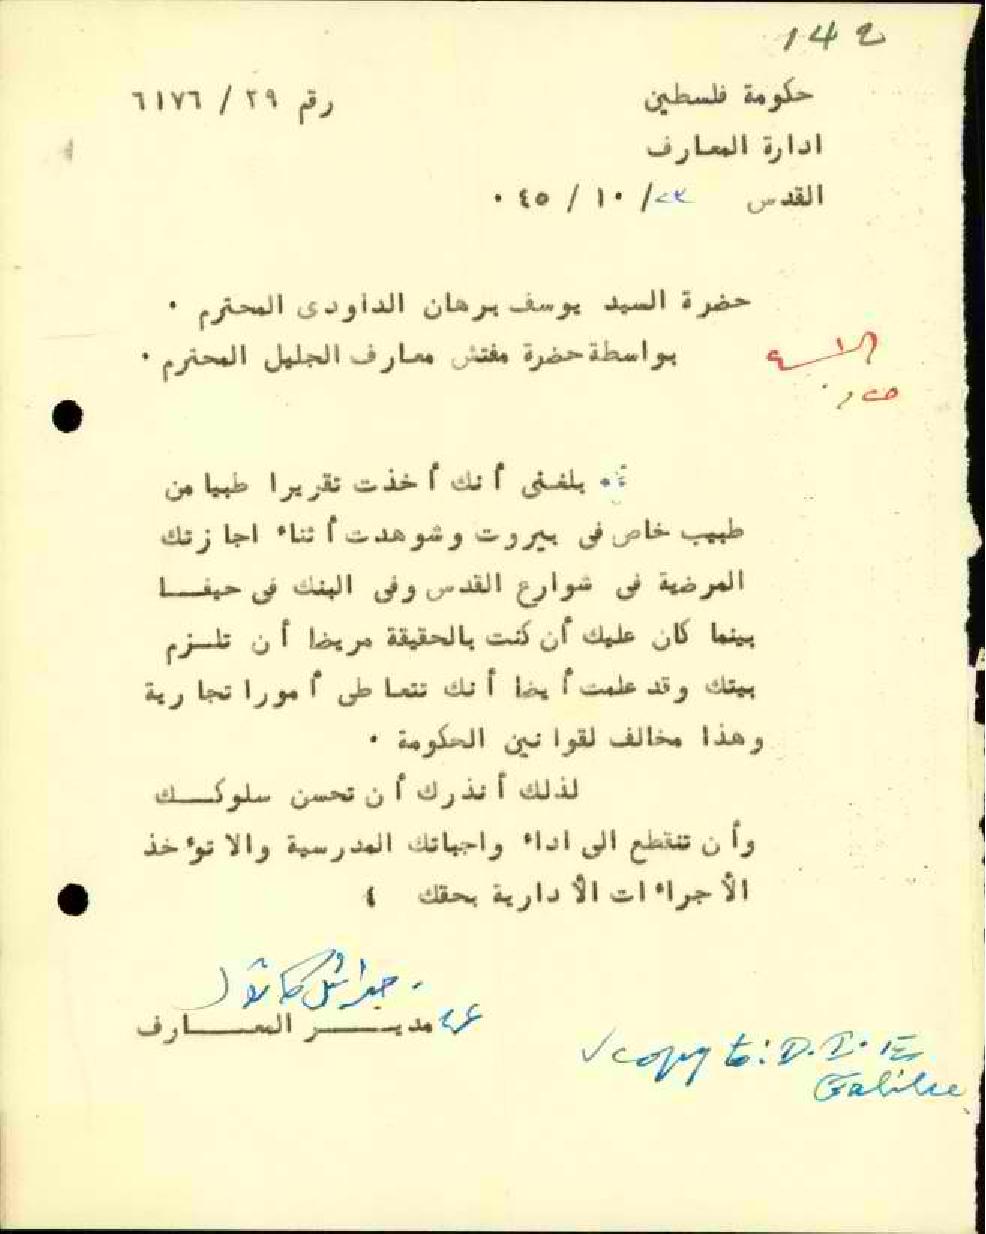 142
حكومة فلسطين
رقم ٢٩ / ٦١٧٦
ادارة المعارف
القدس ٢٣/ ١٠ / ٤٥ ٠
حضرة السيد يوسف برهان الداودى المحترم ٠
بواسطة حضرة مفتش معارف الجليل المحترم ٠
بلغنى أنك أخذت تقريرا طبيا من
طبيب خاص فى بيروت وشوهدت أثناء اجازتك
المرضية فى شوارع القدس وفى البنك فى حيفـــا
بينما كان عليك أن كنت بالحقيقة مريضا أن تلـزم
بيتك وقد علمت أيضا أنك تتعاطى أمورا تجارية
وهذا مخالف لقوانين الحكومة ٠
لذلك أنذرك أن تحسن سلوكـــك
وأن تنقطع الى اداء واجباتك المدرسية والا تؤخذ
الأجراءات الأدارية بحقك ٤
جبرائيل كاتول
ع/ مديـــــر المعـــــارف
✓ copy to: D.I.E
Galilee